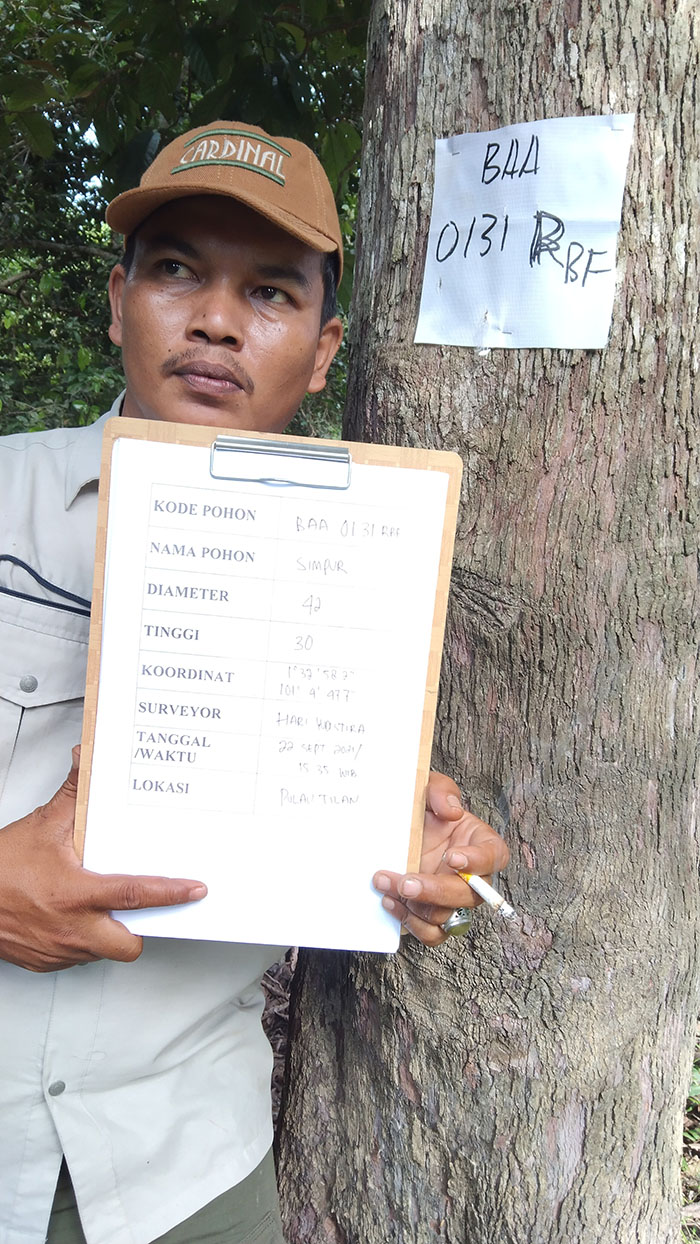 CARDINAL
BAA
0131 BF
KODE POHON BAA 0131 RBF
NAMA POHON SIMPUR
DIAMETER 42
TINGGI 30
KOORDINAT
101° 4'
SURVEYOR HARI
TANGGAL 22 SEPT 2021/
/WAKTU 15.35 WIB
LOKASI PULAU TILAN